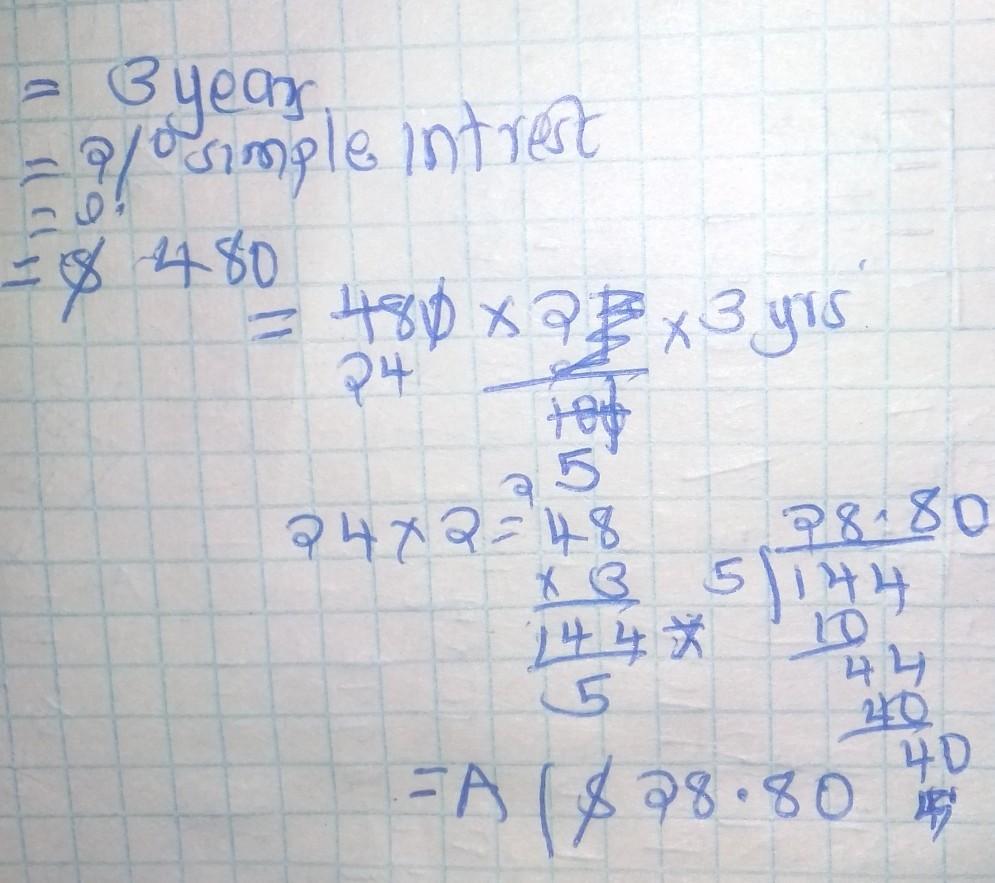 = 3 years
= 2% simple intrest
= $ 480
= 480 × 2 × 3 yrs
24
100
5
24 × 2 = 48
2
× 3
144
5
28.80
5 144
10
44
40
40
= A ( $ 28.80